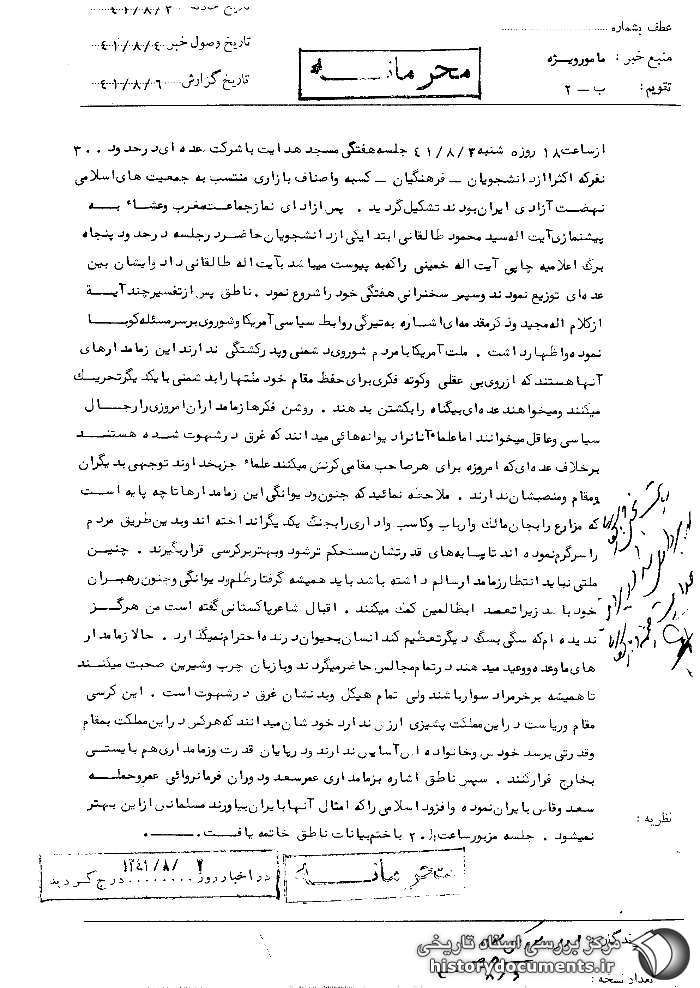 عطف بشماره
تاریخ وصول خبر ٤١/٨/٤
منبع خبر : مامورویژه
محرمانه
تاریخ گزارش ٤١/٨/٦
تقویم : ب – ٢
ازساعت ١٨ روزه شنبه ٤١/٨/٢ جلسه هفتگی مسجد هدایت باشرکت عده ای درحدود ٣٠٠
نفرکه اکثرا ازدانشجویان – فرهنگیان – کسبه واصناف بازاری منتسب به جمعیت های اسلامی
نهضت آزادی ایران بودند تشکیل گردید . پس ازادای نمازجماعت مغرب وعشاء به
پیشنمازی آیت اله سید محمود طالقانی ابتدا یکی ازدانشجویان حاضردرجلسه درحدود پنجاه
برگ اعلامیه چاپی آیت اله خمینی راکه به پیوست میباشد بآیت اله طالقانی داد وایشان بین
عده ای توزیع نمودند وسپس سخنرانی هفتگی خود راشروع نمود . ناطق پس ازتفسیرچند آیة
ازکلام اله مجید وذکرمقدمه ای اشاره به تیرگی روابط سیاسی آمریکا وشوروی برسرمسئله کوبا
نموده واظهارداشت . ملت آمریکا بامردم شوروی دشمنی وپدرکشتگی ندارند این زمامدارهای
آنها هستند که ازروی بی عقلی وکوته فکری برای حفظ مقام خود ملتها رابدشمنی با یکدیگرتحریک
میکنند ومیخواهند عده ای بیگناه رابکشتن بدهند . روشن فکرها زمامداران امروزی رارجال
سیاسی وعاقل میخوانند اماعلماء آنانرادیوانه هائی میدانند که غرق درشهوت شده هستند
برخلاف عده ای که امروزه برای هرصاحب مقامی کرنش میکنند علماء جزبخداوند توجهی بدیگران
ومقام ومنصبشان ندارند . ملاحظه نمائید که جنون ودیوانگی این زمامدارها تاچه پایه است
که مزارع رابجان مالک وارباب وکاسب واداری رابجنگ یکدیگرانداخته اند وبدین طریق مردم
راسرگرم نموده اند تاپایه های قدرتشان مستحکم ترشود وبهتربرکرسی قرارگیرند . چنین
ملتی نباید انتظارزمامدارسالم داشته باشد باید همیشه گرفتارظلم ودیوانگی وجنون رهبران
خود باشد زیراتعمد ابظالمین کمک میکنند . اقبال شاعرپاکستانی گفته است من هرگز
ندیده ام که سگی بسگ دیگرتعظیم کند انسان بحیوان درنده احترام نمیگذارد . حالا زمامدار
های ما وعده ووعید میدهند درتمام مجالس حاضرمیگردند وبازبان چرب وشیرین صحبت میکنند
تاهمیشه برخرمراد سوارباشند ولی تمام هیکل وبدنشان غرق درشهوت است . این کرسی
مقام وریاست دراین مملکت پشیزی ارزش ندارد خودشان میدانند که هرکس دراین مملکت بمقام
وقدرتی برسد خودش وخانواده اش آسایش ندارند ودرپایان قدرت وزمامداری هم بایستی
بخارج فرارکنند . سپس ناطق اشاره بزمامداری عمرسعد ودوران فرمانروائی عمروحمله
سعد وقاص بایران نموده وافزود اسلامی راکه امثال آنها بایران بیاورند مسلمانی ازاین بهتر
نمیشود . جلسه مزبورساعت ٢٠ باختم بیانات ناطق خاتمه یافت .
نظریه :
محرمانه
دراخبارروز ١٣٤١/٨/٢ درج گردید
تعداد نسخه :
مرکز بررسی اسناد تاریخی
historydocuments.ir